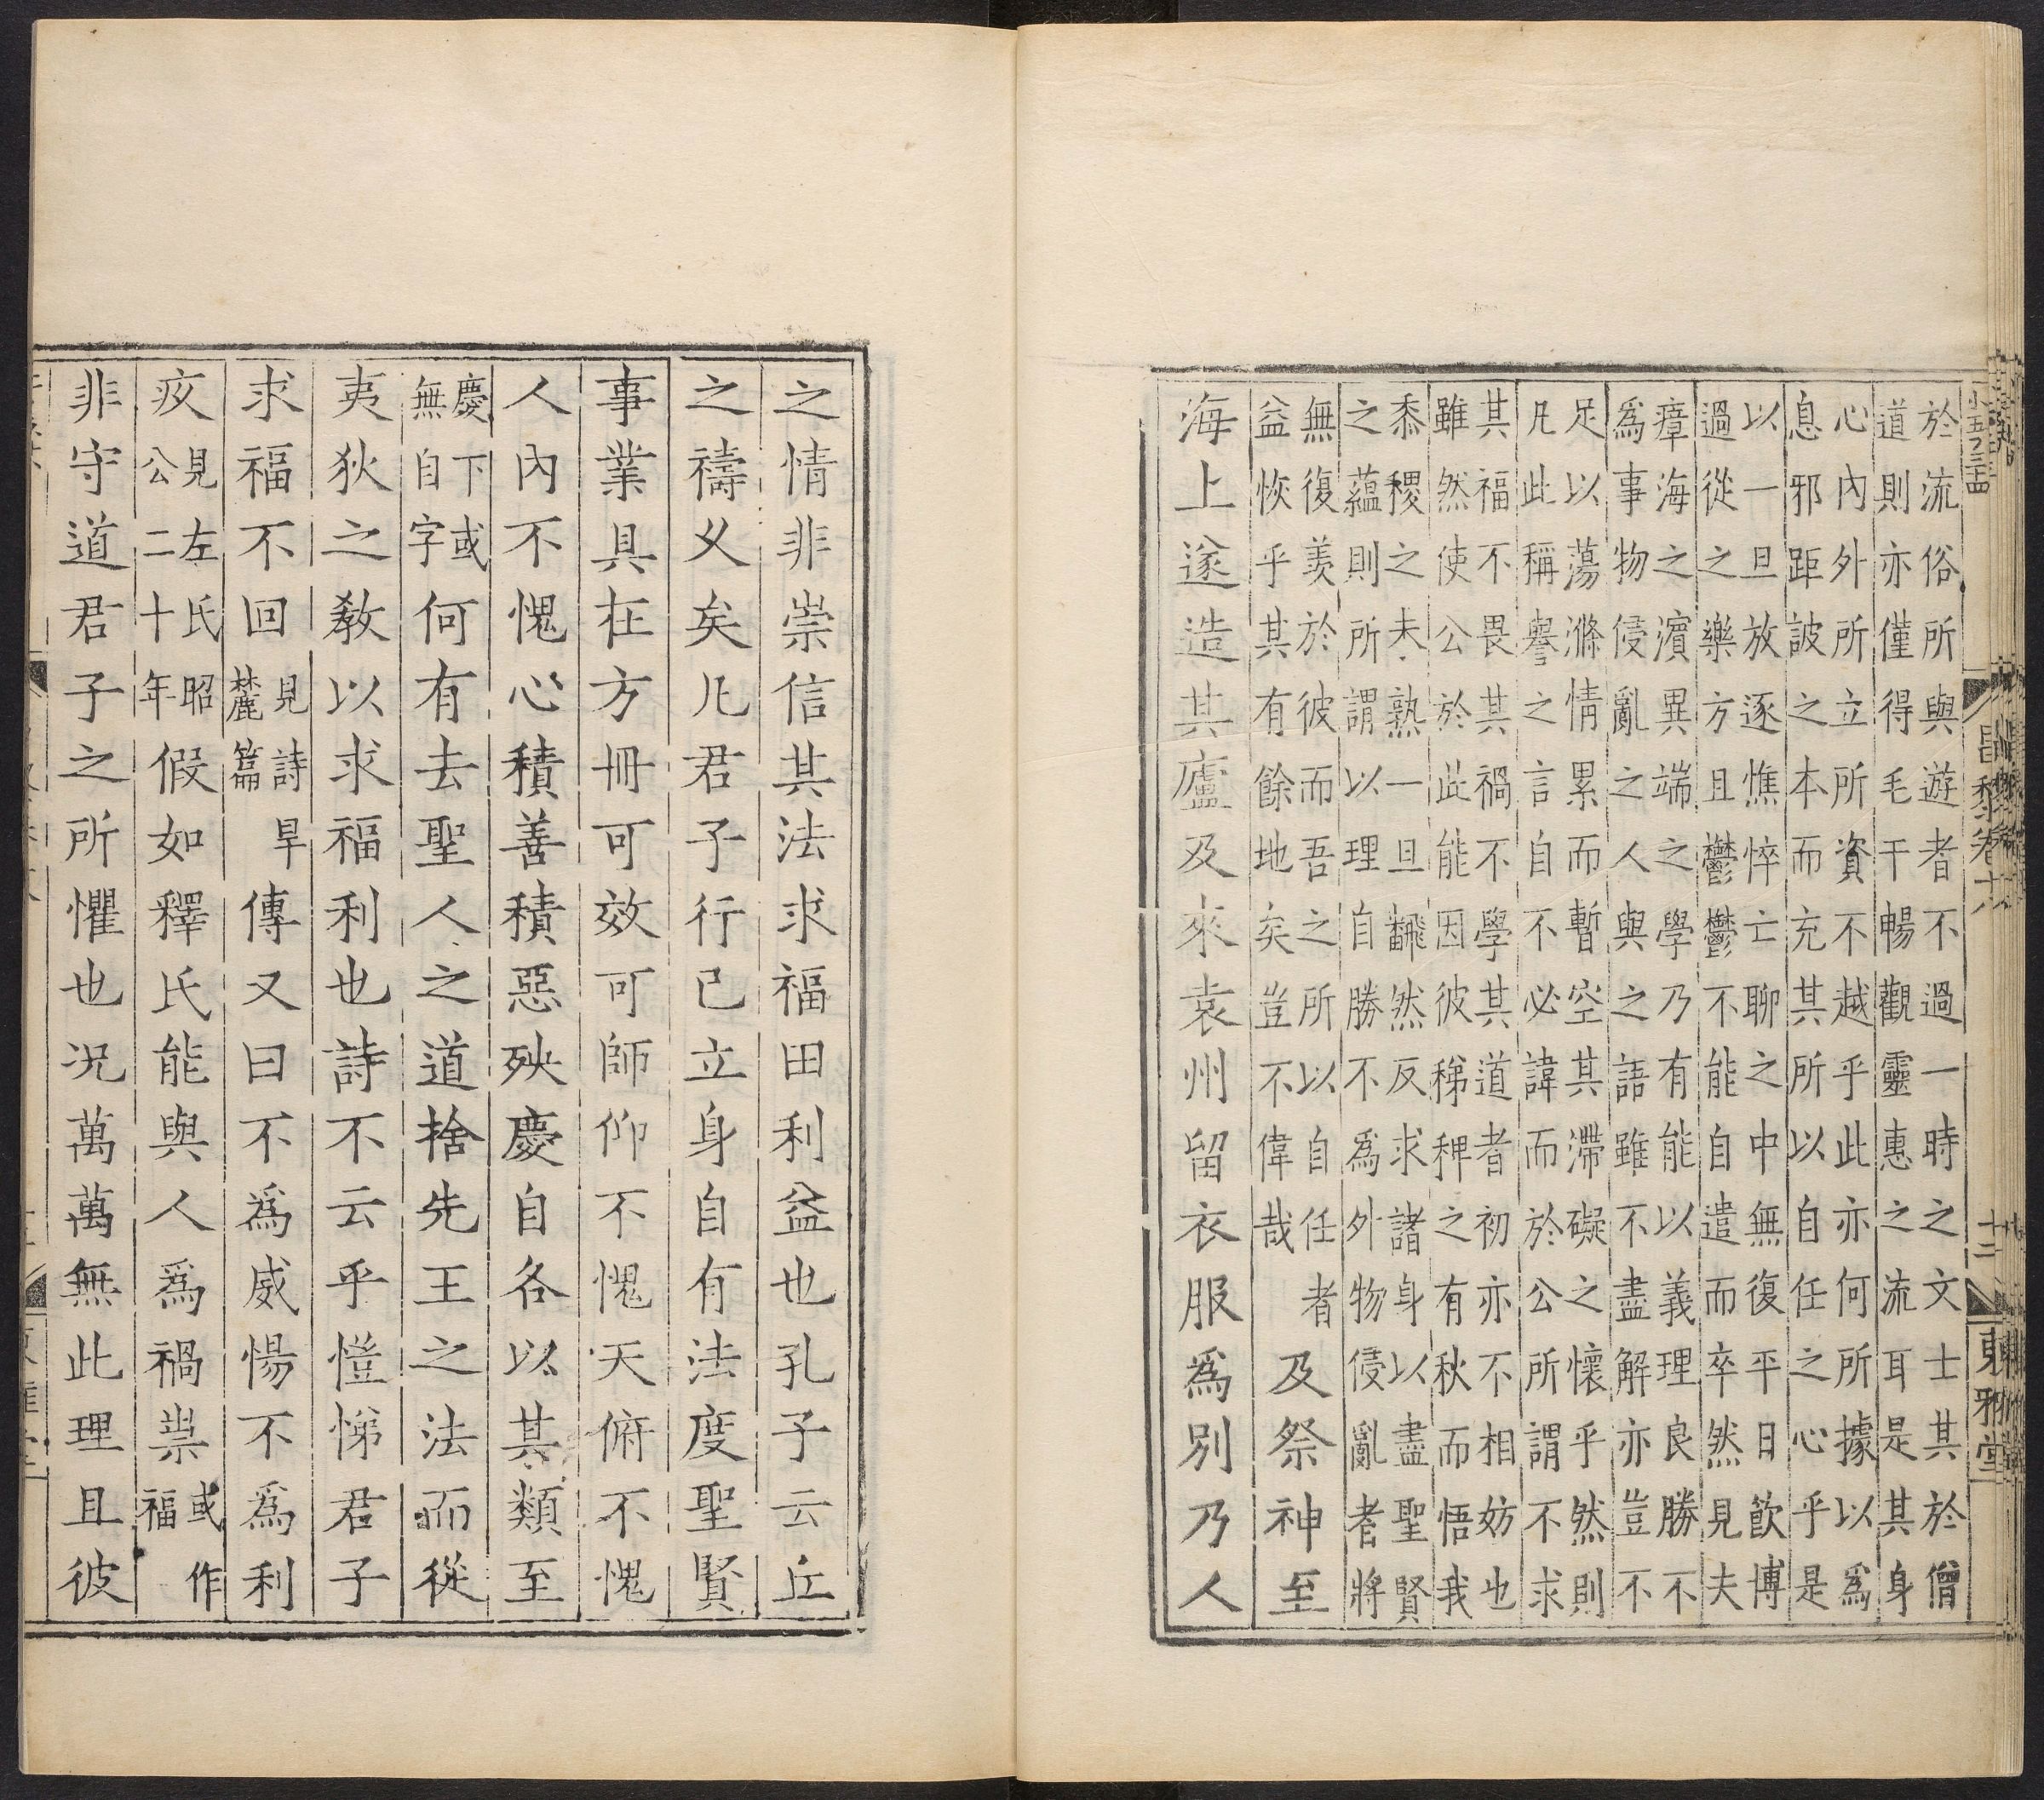 昌黎卷十八
十二
東雅堂
於流俗所與遊者不過一時之文士其於僧
道則亦僅得毛干暢觀靈惠之流耳是其身
心內外所立所資不越乎此亦何所據以爲
息邪距詖之本而充其所以自任之心乎是
以一旦放逐憔悴亡聊之中無復平日飲博
過從之樂方且鬱鬱不能自遣而卒然見夫
瘴海之濵異端之學乃有能以義理良勝不
爲事物侵亂之人與之語雖不盡解亦豈不
足以蕩滌情累而暫空其滯礙之懷乎然則
凡此稱譽之言自不必諱而於公所謂不求
其福不畏其禍不學其道者初亦不相妨也
雖然使公於此能因彼稊稗之有秋而悟我
黍稷之未熟一旦飜然反求諸身以盡聖賢
之蘊則所謂以理自勝不爲外物侵亂者將
無復羨於彼而吾之所以自任者
益恢乎其有餘地矣豈不偉哉
及祭神至
海上遂造其廬及來袁州留衣服爲別乃人
之情非崇信其法求福田利益也孔子云丘
之禱乆矣凡君子行已立身自有法度聖賢
事業具在方冊可效可師仰不愧天俯不愧
人內不愧心積善積惡殃慶自各以其類至
慶下或無自字何有去聖人之道捨先王之法而從
夷狄之敎以求福利也詩不云乎愷悌君子
求福不回見詩旱麓篇傳又曰不爲威惕不爲利
疚見左氏昭公二十年假如釋氏能與人爲禍祟或作福
非守道君子之所懼也况萬萬無此理且彼